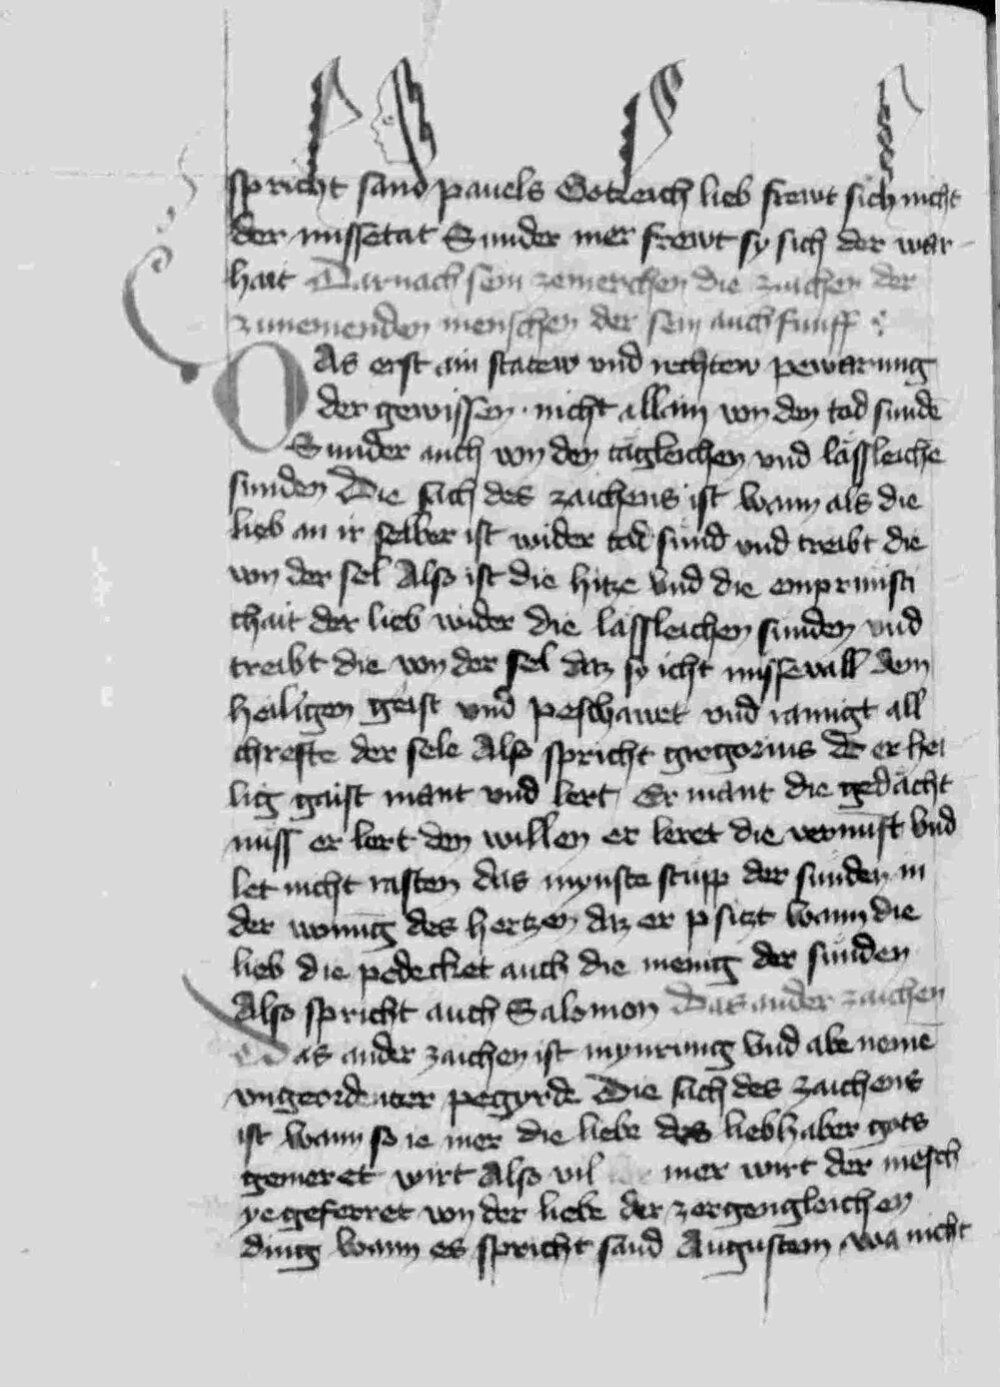 spricht sand pauels Gotleich lieb frewt sich nicht
der missetat Sunder mer frewt sy sich der war
hait Darnach sein zemerchen die zaichen der
zunemenden menschen der sein auch funff
Das erst ain statew vnd rechtew pewarung
der gewissen nicht allain von den tod sunden̄
Sunder auch von den tägleichen vnd lässleiche
sunden Die sach des zaichens ist wann als die
lieb an ir selber ist wider tod sünd vnd treibt die
von der sel Also ist die hitze vnd die enprünsti
chait der lieb wider die lässleichen sunden vnd
treibt die von der sel daz so icht missevall dem
heiligen geist vnd peschawet vnd rainigt all
chrefte der sele Also spricht gregorius der hei
lig gaist mant vnd lert Er mant die gedächt
nüss er lert den willen er leret die vernüft vnd
let nicht rasten das mynste stupp der sunden in
der wonūg des hertzen daz er psitzt wann die
lieb die pedecket auch die menig der sünden
Also spricht auch Salomon Das ander zaichen
Das ander zaichen ist mynrung vnd abe nemē
vngeordenter pegyrde Die sach des zaichens
ist wann so ie mer die liebe des liebhaber gots
gemeret wirt Also vil mer wirt der mēsch
ye geferret von der liebe der zergengleichen
ding wann es spricht sand Augustein wa nicht